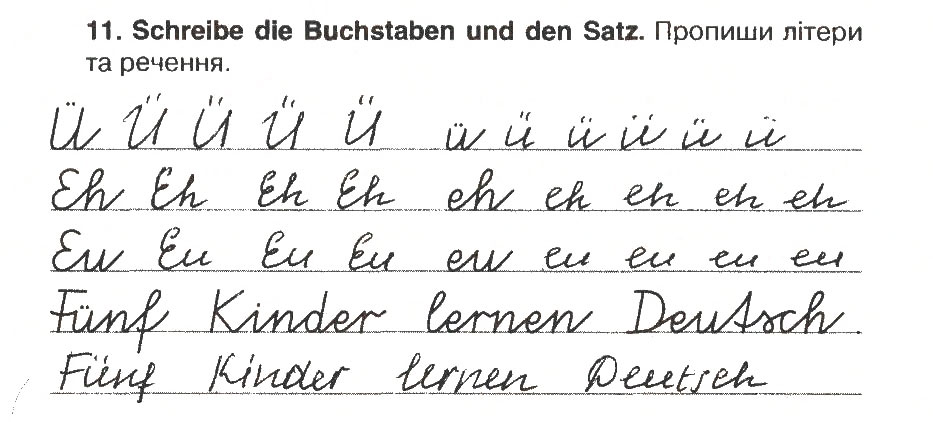 11. Schreibe die Buchstaben und den Satz. Пропиши літери
та речення.
Ü Ü Ü Ü Ü ü ü ü ü ü ü
Eh Eh Eh Eh eh eh eh eh eh
Eu Eu Eu Eu eu eu eu eu eu
Fünf Kinder lernen Deutsch.
Fünf Kinder lernen Deutsch